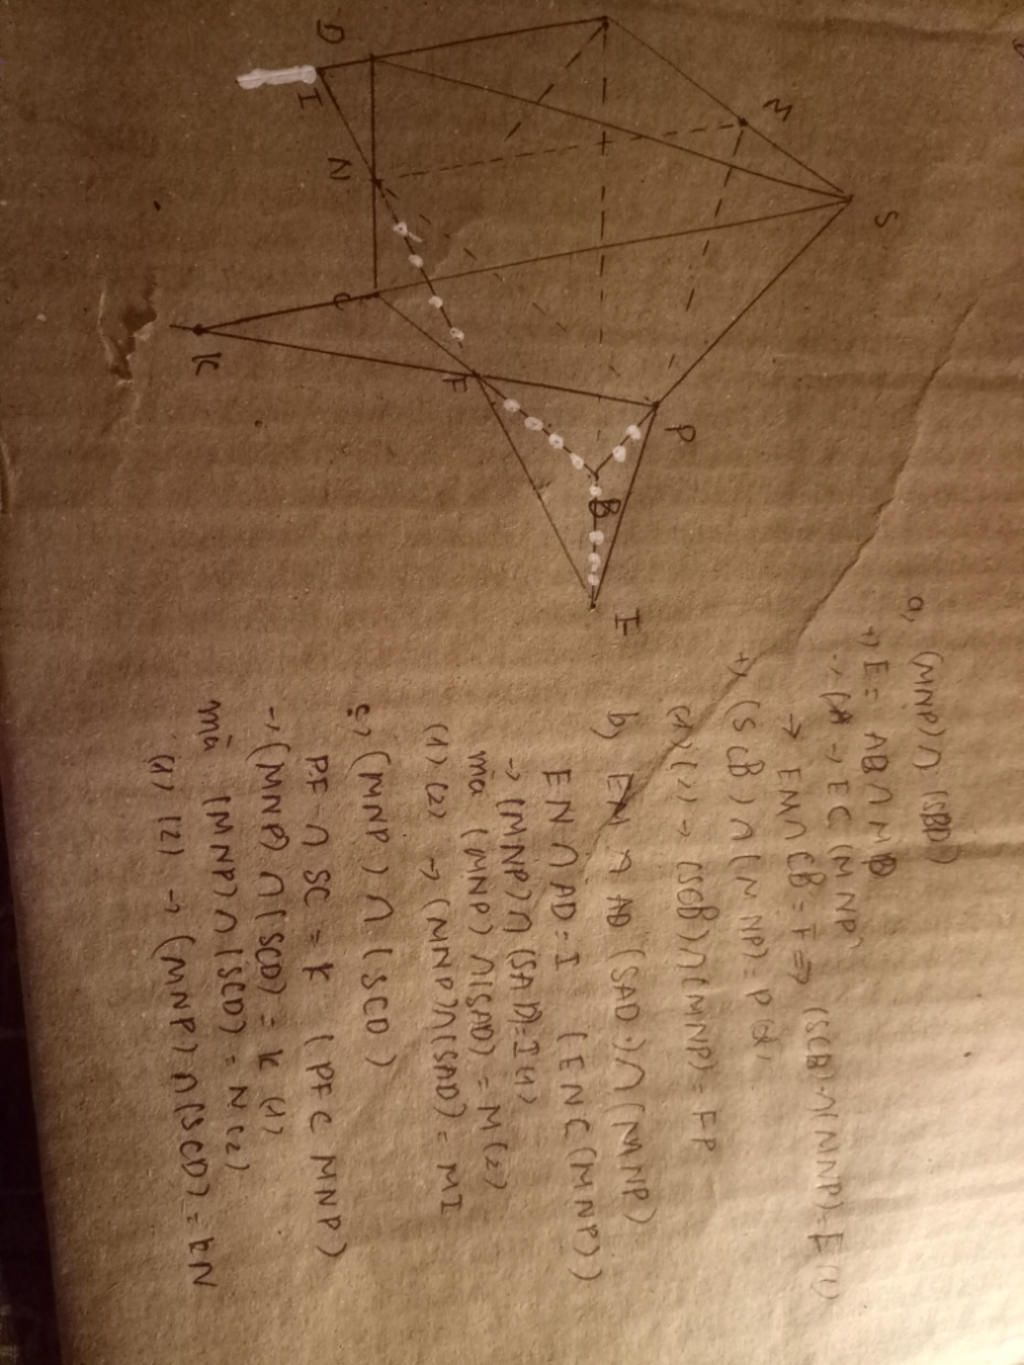 S
M
P
D
I
N
C
K
F
B
I
a, (MNP) ∩ (SBD)
+) E = AB ∩ MP
→ EC (MNP)
→ EM ∩ CB = F ⇒ (SCB) ∩ (MNP) = F (1)
+) (SCB) ∩ (MNP) = P (2)
(1) (2) → (SCB) ∩ (MNP) = FP
b, EM ∩ AD (SAD) ∩ (MNP)
EN ∩ AD = I (ENC (MNP))
→ (MNP) ∩ (SAD) = I (1)
mà (MNP) ∩ (SAD) = M (2)
(1) (2) → (MNP) ∩ (SAD) = MI
c, (MNP) ∩ (SCD)
PF ∩ SC = K (PFC MNP)
→ (MNP) ∩ (SCD) = K (1)
mà (MNP) ∩ (SCD) = N (2)
(1) (2) → (MNP) ∩ (SCD) = KN